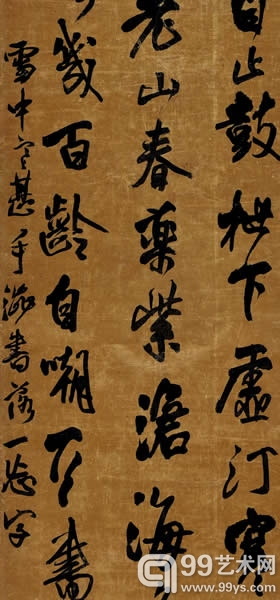 止鼓枻下虛汀
老山春藥紫滄海
百齡自嘲書
雪中寒甚手書落一字
99艺术网
www.99ys.com